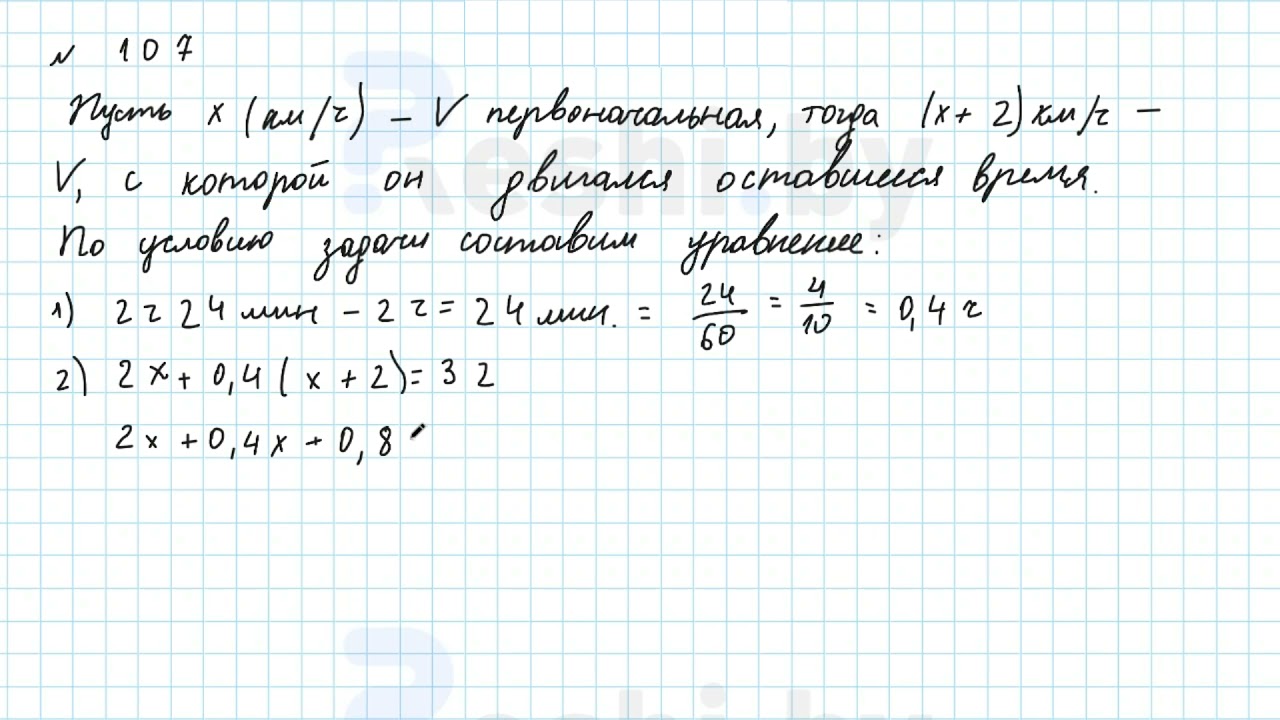 N 107
Пусть x (км/ч) – V первоначальная, тогда (x + 2) км/ч –
V, с которой он двигался оставшееся время.
По условию задачи составим уравнение:
1) 2 ч 24 мин – 2 ч = 24 мин. = 24/60 = 4/10 = 0,4 ч
2) 2x + 0,4 (x + 2) = 32
2x + 0,4x + 0,8
Reshi.by
Reshi.by